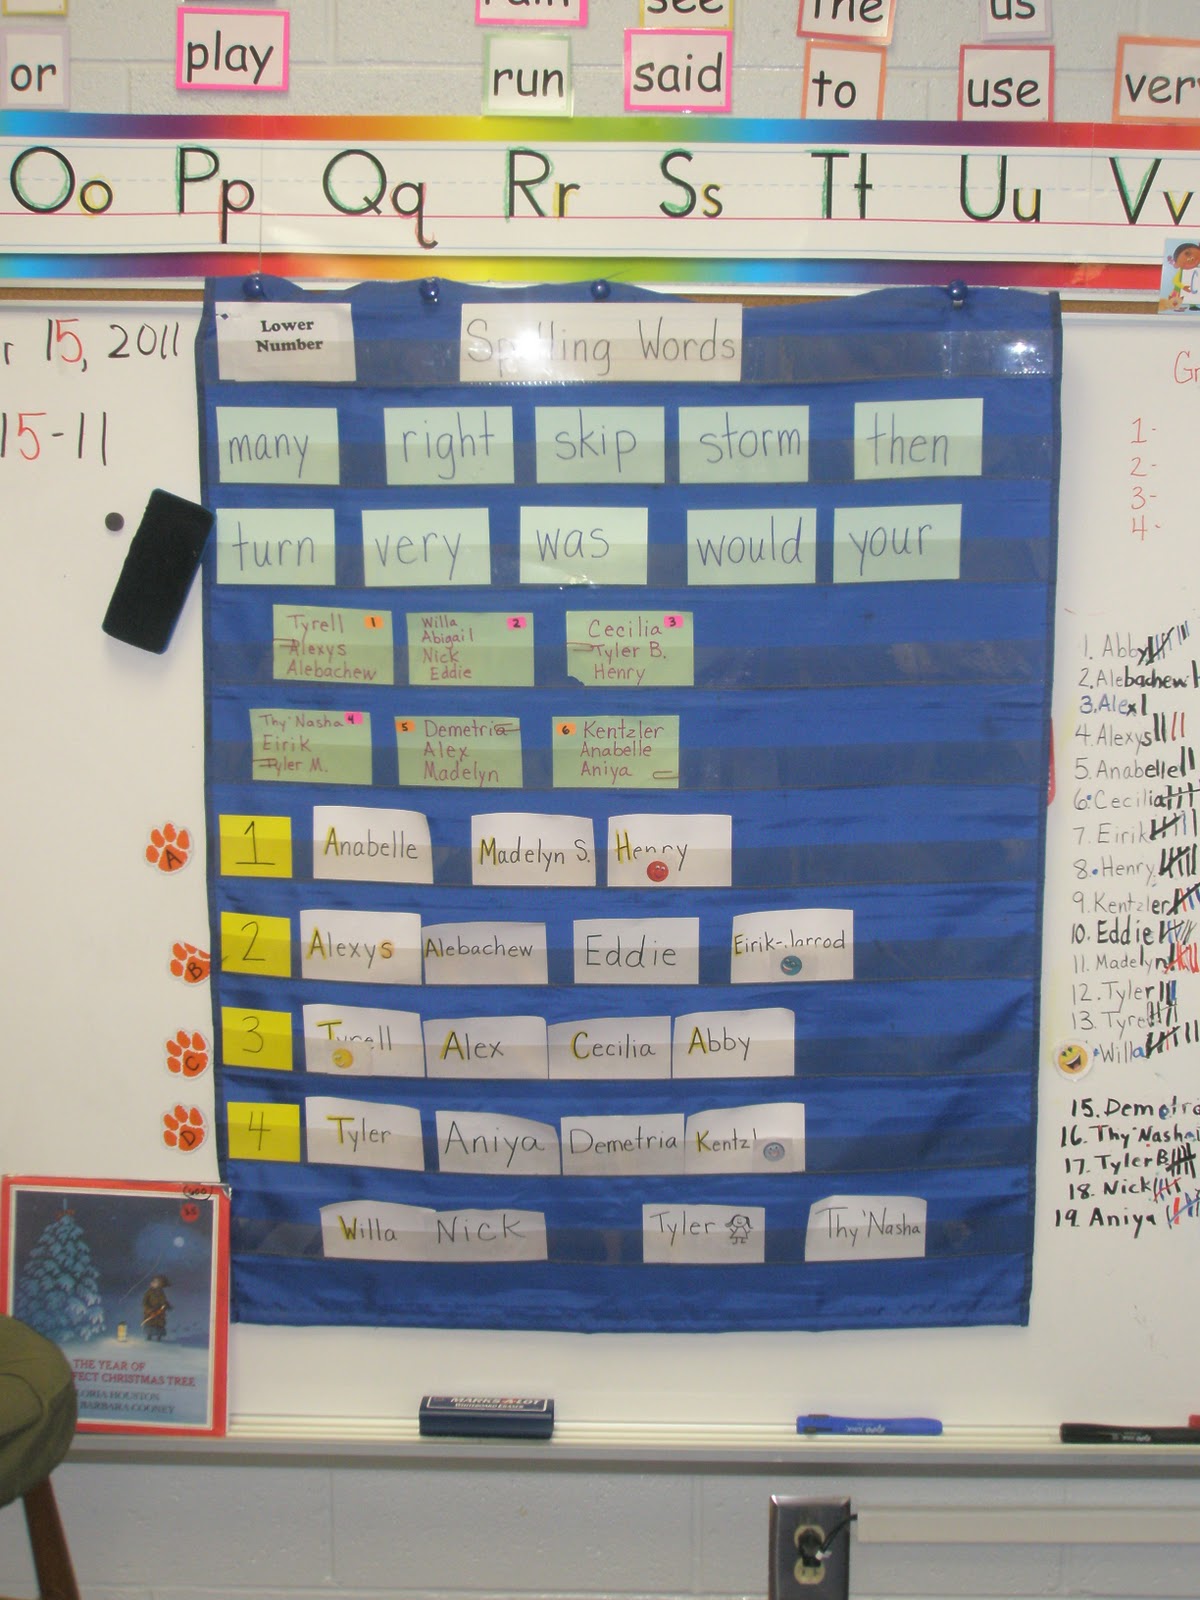 see
the
us
or
play
run
said
to
use
Oo Pp Qq Rr Ss Tt Uu Vv
Lower
Number
Spelling Words
r 15, 2011
15-11
many right skip storm then
turn very was would your
1-
2-
3-
4-
Tyrell 1
Alexys
Alebachew
Willa 2
Abigail
Nick
Eddie
Cecilia 3
Tyler B.
Henry
Thy'Nasha 4
Eirik
Tyler M.
5 Demetria
Alex
Madelyn
6 Kentzler
Anabelle
Aniya
A
1 Anabelle Madelyn S. Henry
B
2 Alexys Alebachew Eddie Eirik-Jarrod
C
3 Tyrell Alex Cecilia Abby
D
4 Tyler Aniya Demetria Kentzl
Willa Nick Tyler Thy'Nasha
1. Abby
2. Alebachew
3. Alex
4. Alexys
5. Anabelle
6. Cecilia
7. Eirik
8. Henry
9. Kentzler
10. Eddie
11. Madelyn
12. Tyler
13. Tyrell
Willa
15. Demetria
16. Thy'Nasha
17. Tyler B.
18. Nick
19. Aniya
THE YEAR OF
FECT CHRISTMAS TREE
LORIA HOUSTON
BARBARA COONEY
MARKS-A-LOT